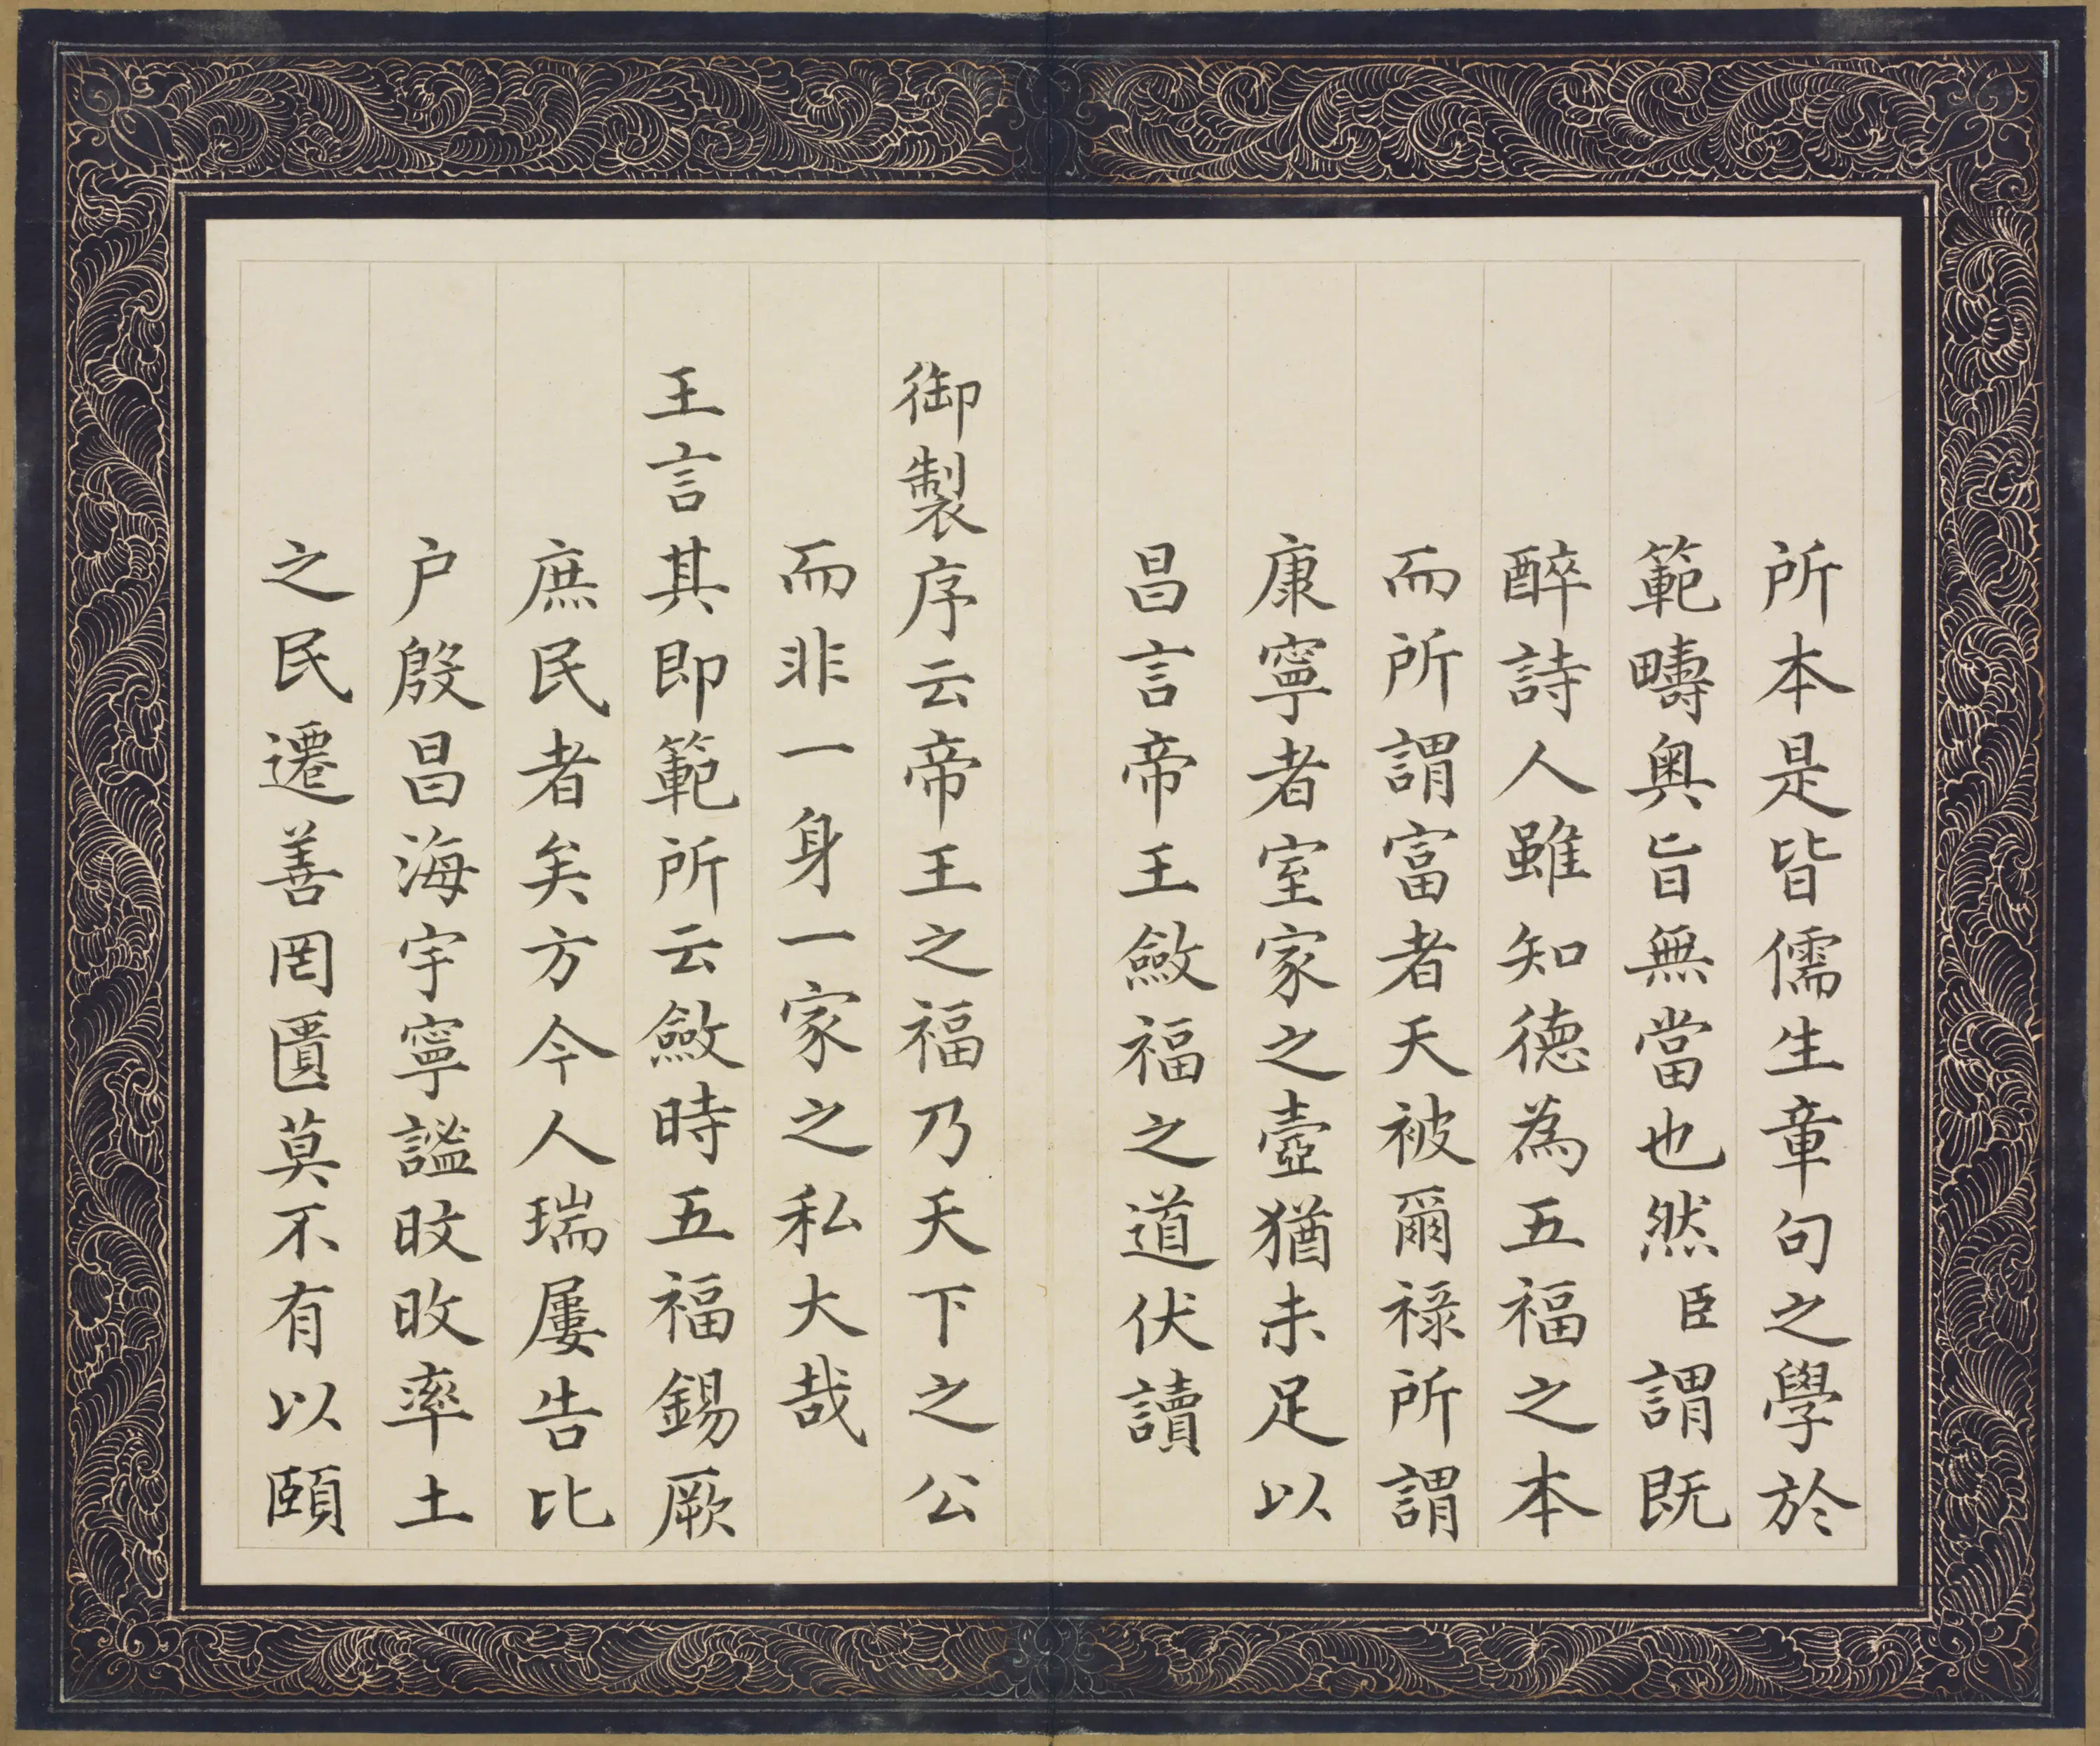 所本是皆儒生章句之學於
範疇奧旨無當也然臣謂既
醉詩人雖知德為五福之本
而所謂富者天被爾祿所謂
康寧者室家之壼猶未足以
昌言帝王斂福之道伏讀
御製序云帝王之福乃天下之公
而非一身一家之私大哉
王言其即範所云斂時五福錫厥
庶民者矣方今人瑞屢告比
户殷昌海宇寧謐旼旼率土
之民遷善罔匱莫不有以頤